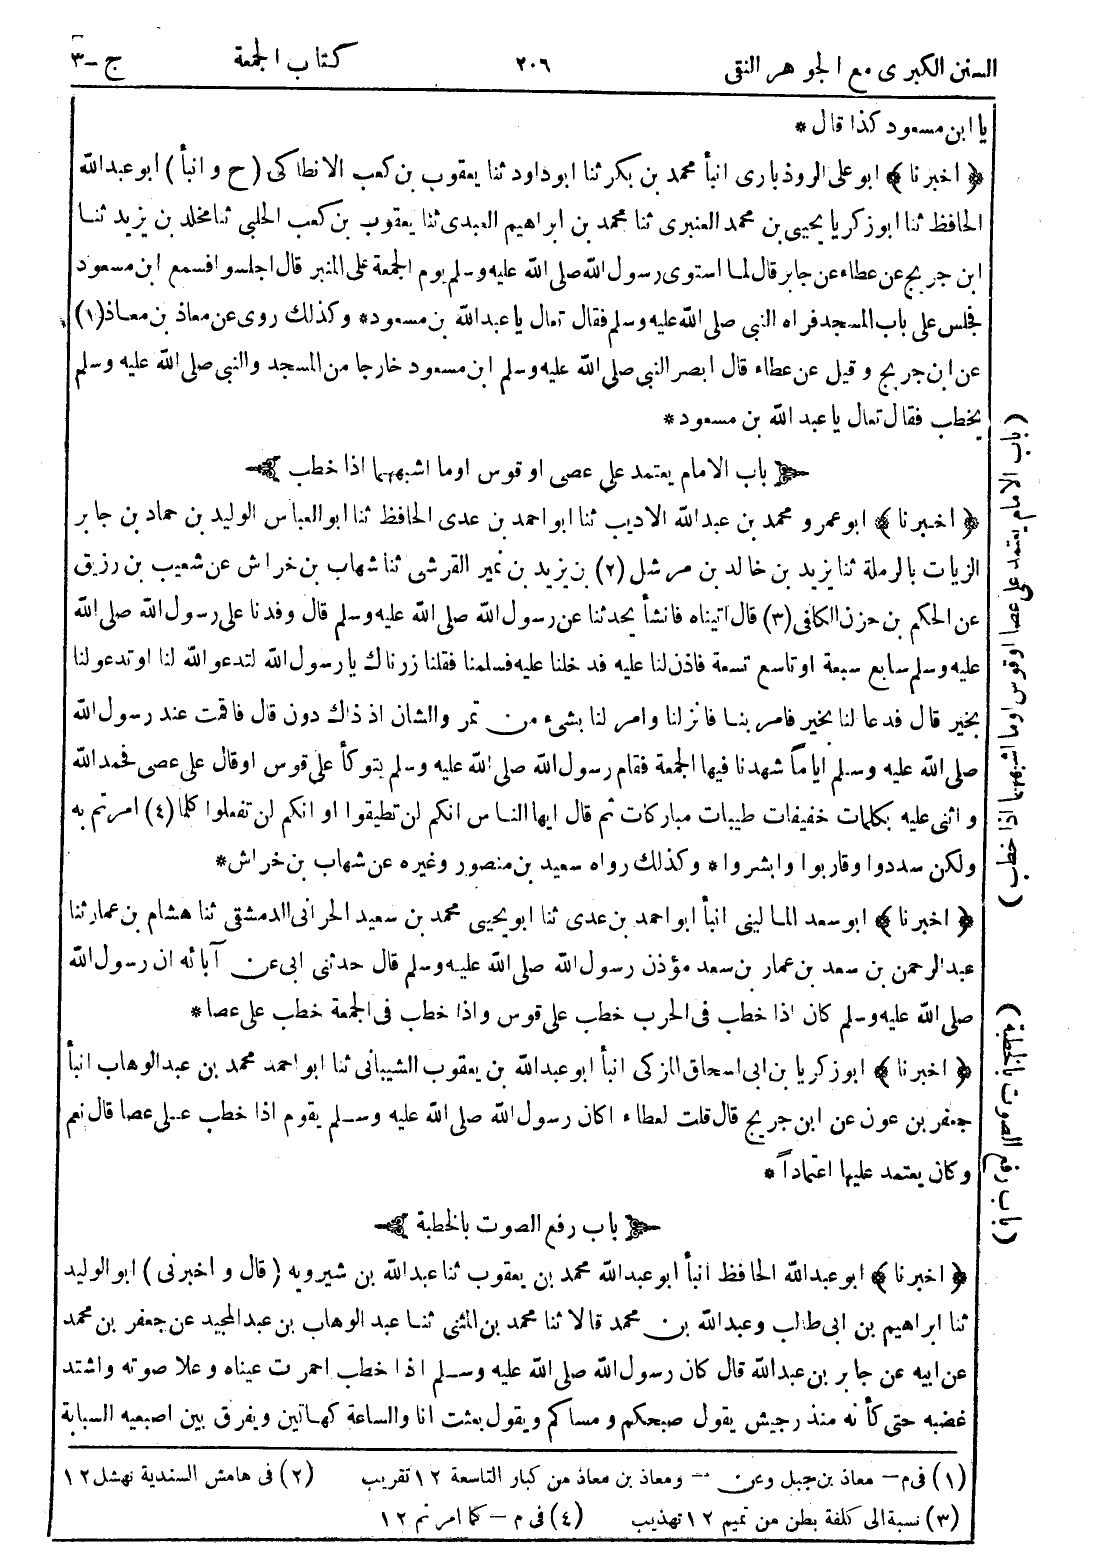 السنن الكبرى مع الجوهر النقى ٢٠٦ كتاب الجمعة ج-٣
يا ابن مسعود كذا قال *
﴿ اخبرنا ﴾ ابو على الروذبارى انبأ محمد بن بكر ثنا ابو داود ثنا يعقوب بن كعب الانطاكى ( ح وانبأ ) ابو عبدالله
الحافظ ثنا ابو زكريا يحيى بن محمد العنبرى ثنا محمد بن ابراهيم العبدى ثنا يعقوب بن كعب الحلبى ثنا مخلد بن يزيد ثنا
ابن جريج عن عطاء عن جابر قال لما استوى رسول الله صلى الله عليه وسلم يوم الجمعة على المنبر قال اجلسوا فسمع ابن مسعود
فجلس على باب المسجد فرآه النبى صلى الله عليه وسلم فقال تعال يا عبدالله بن مسعود * وكذلك روى عن معاذ بن معاذ (١)
عن ابن جريج وقيل عن عطاء قال ابصر النبى صلى الله عليه وسلم ابن مسعود خارجا من المسجد والنبى صلى الله عليه وسلم
يخطب فقال تعال يا عبد الله بن مسعود *
باب الامام يعتمد على عصى او قوس اوما اشبههما اذا خطب
﴿ اخبرنا ﴾ ابو عمرو محمد بن عبدالله الاديب ثنا ابو احمد بن عدى الحافظ ثنا ابو العباس الوليد بن حماد بن جابر
الزيات بالرملة ثنا يزيد بن خالد بن مرشل (٢) بن يزيد بن نمير القرشى ثنا شهاب بن خراش عن شعيب بن رزيق
عن الحكم بن حزن الكلفى (٣) قال اتيناه فانشأ يحدثنا عن رسول الله صلى الله عليه وسلم قال وفدنا على رسول الله صلى الله
عليه وسلم سابع سبعة او تاسع تسعة فاذن لنا عليه فدخلنا عليه فسلمنا فقلنا زرناك يا رسول الله لتدعو الله لنا او تدعو لنا
بخير قال فدعا لنا بخير فامر بنا فانزلنا وامر لنا بشىء من تمر والشان اذ ذاك دون قال فاقمت عند رسول الله
صلى الله عليه وسلم اياماً شهدنا فيها الجمعة فقام رسول الله صلى الله عليه وسلم يتوكأ على قوس اوقال على عصى فحمد الله
واثنى عليه بكلمات خفيفات طيبات مباركات ثم قال ايها الناس انكم لن تطيقوا او انكم لن تفعلوا كلما (٤) امرتم به
ولكن سددوا وقاربوا وابشروا * وكذلك رواه سعيد بن منصور وغيره عن شهاب بن خراش *
﴿ اخبرنا ﴾ ابو سعد المالينى انبأ ابو احمد بن عدى ثنا ابو يحيى محمد بن سعيد الحرانى الدمشقى ثنا هشام بن عمار ثنا
عبد الرحمن بن سعد بن عمار بن سعد مؤذن رسول الله صلى الله عليه وسلم قال حدثنى ابى عن آبائه ان رسول الله
صلى الله عليه وسلم كان اذا خطب فى الحرب خطب على قوس واذا خطب فى الجمعة خطب على عصا *
﴿ اخبرنا ﴾ ابو زكريا بن ابى اسحاق المزكى انبأ ابو عبدالله بن يعقوب الشيبانى ثنا ابو احمد محمد بن عبدالوهاب انبأ
جعفر بن عون عن ابن جريج قال قلت لعطاء اكان رسول الله صلى الله عليه وسلم يقوم اذا خطب على عصا قال نعم
وكان يعتمد عليها اعتماداً *
باب رفع الصوت بالخطبة
﴿ اخبرنا ﴾ ابو عبدالله الحافظ انبأ أبو عبدالله محمد بن يعقوب ثنا عبدالله بن شيرويه ( قال واخبرنى ) ابو الوليد
ثنا ابراهيم بن ابى طالب وعبدالله بن محمد قالا ثنا محمد بن المثنى ثنا عبد الوهاب بن عبد المجيد عن جعفر بن محمد
عن ابيه عن جابر بن عبدالله قال كان رسول الله صلى الله عليه وسلم اذا خطب احمرت عيناه وعلا صوته واشتد
غضبه حتى كأنه منذر جيش يقول صبحكم ومساكم ويقول بعثت انا والساعة كهاتين ويفرق بين اصبعيه السبابة
(١) فى م - معاذ بن جبل وعن -- ومعاذ بن معاذ من كبار التاسعة ١٢ تقريب (٢) فى هامش السندية نهشل ١٢
(٣) نسبة الى كلفة بطن من تميم ١٢ تهذيب (٤) فى م - كما امرتم ١٢
( باب الامام يعتمد على عصا او قوس اوما اشبههما اذا خطب )
( باب رفع الصوت بالخطبة )